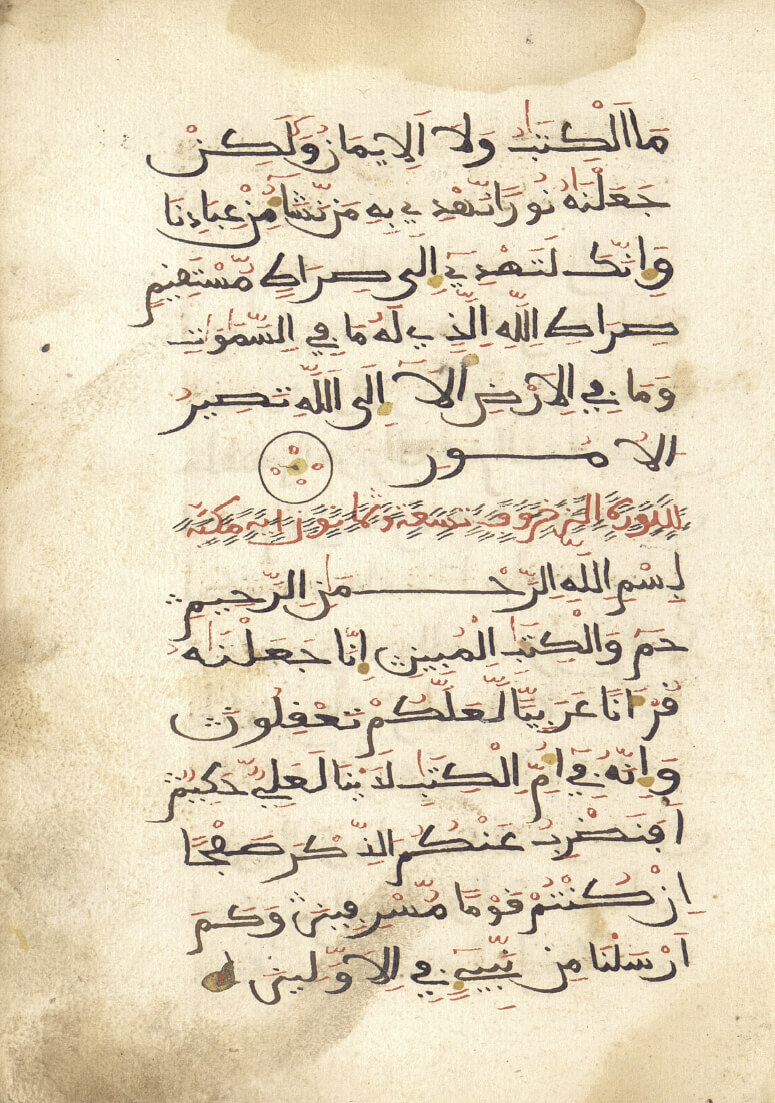 مَا اَلْكِتَٰبُ وَلَا اَلِايمَٰنُ وَلَٰكِنْ
جَعَلْنَٰهُ نُوراً نَّهْدِے بِهِۦ مَن نَّشَآءُ مِنْ عِبَادِنَا
وَإِنَّكَ لَتَهْدِےٓ إِلَىٰ صِرَٰطٖ مُّسْتَقِيمٖ
صِرَٰطِ اِللَّهِ اِلذِے لَهُۥ مَا فِے اِلسَّمَٰوَٰتِ
وَمَا فِے اِلَارْضِ أَلَآ إِلَى اَللَّهِ تَصِيرُ
اُلُامُورُ
سورة الزخرف تسعة وثمانون اية مكية
بِسْمِ اِللَّهِ اِلرَّحْمَٰنِ اِلرَّحِيمِ
حمٓ وَالْكِتَٰبِ اِلْمُبِينِ إِنَّا جَعَلْنَٰهُ
قُرْءَٰناً عَرَبِيّاً لَّعَلَّكُمْ تَعْقِلُونَ
وَإِنَّهُۥ فِےٓ أُمِّ اِلْكِتَٰبِ لَدَيْنَا لَعَلِيٌّ حَكِيمٌ
أَفَنَضْرِبُ عَنكُمُ اُلذِّكْرَ صَفْحاً
اِن كُنتُمْ قَوْماً مُّسْرِفِينَ وَكَمَ
اَرْسَلْنَا مِن نَّبِيٓءٖ فِے اِلَاوَّلِينَ